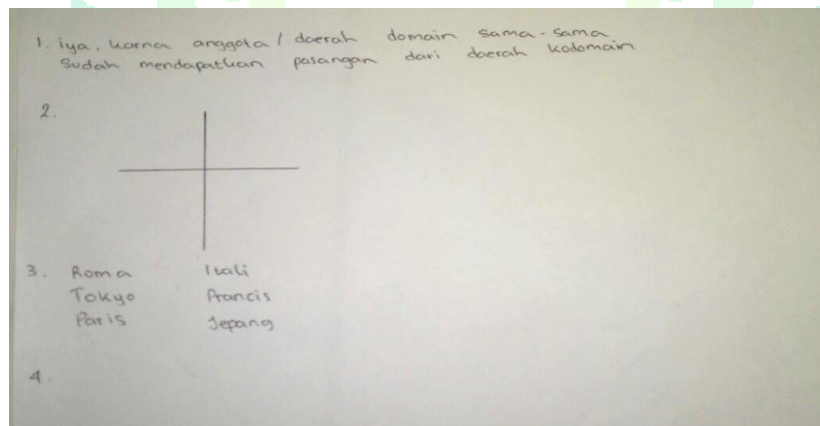 1. iya, karna anggota / daerah domain sama-sama
Sudah mendapatkan pasangan dari daerah kodomain
2.
3. Roma Itali
Tokyo Prancis
Paris Jepang
4.